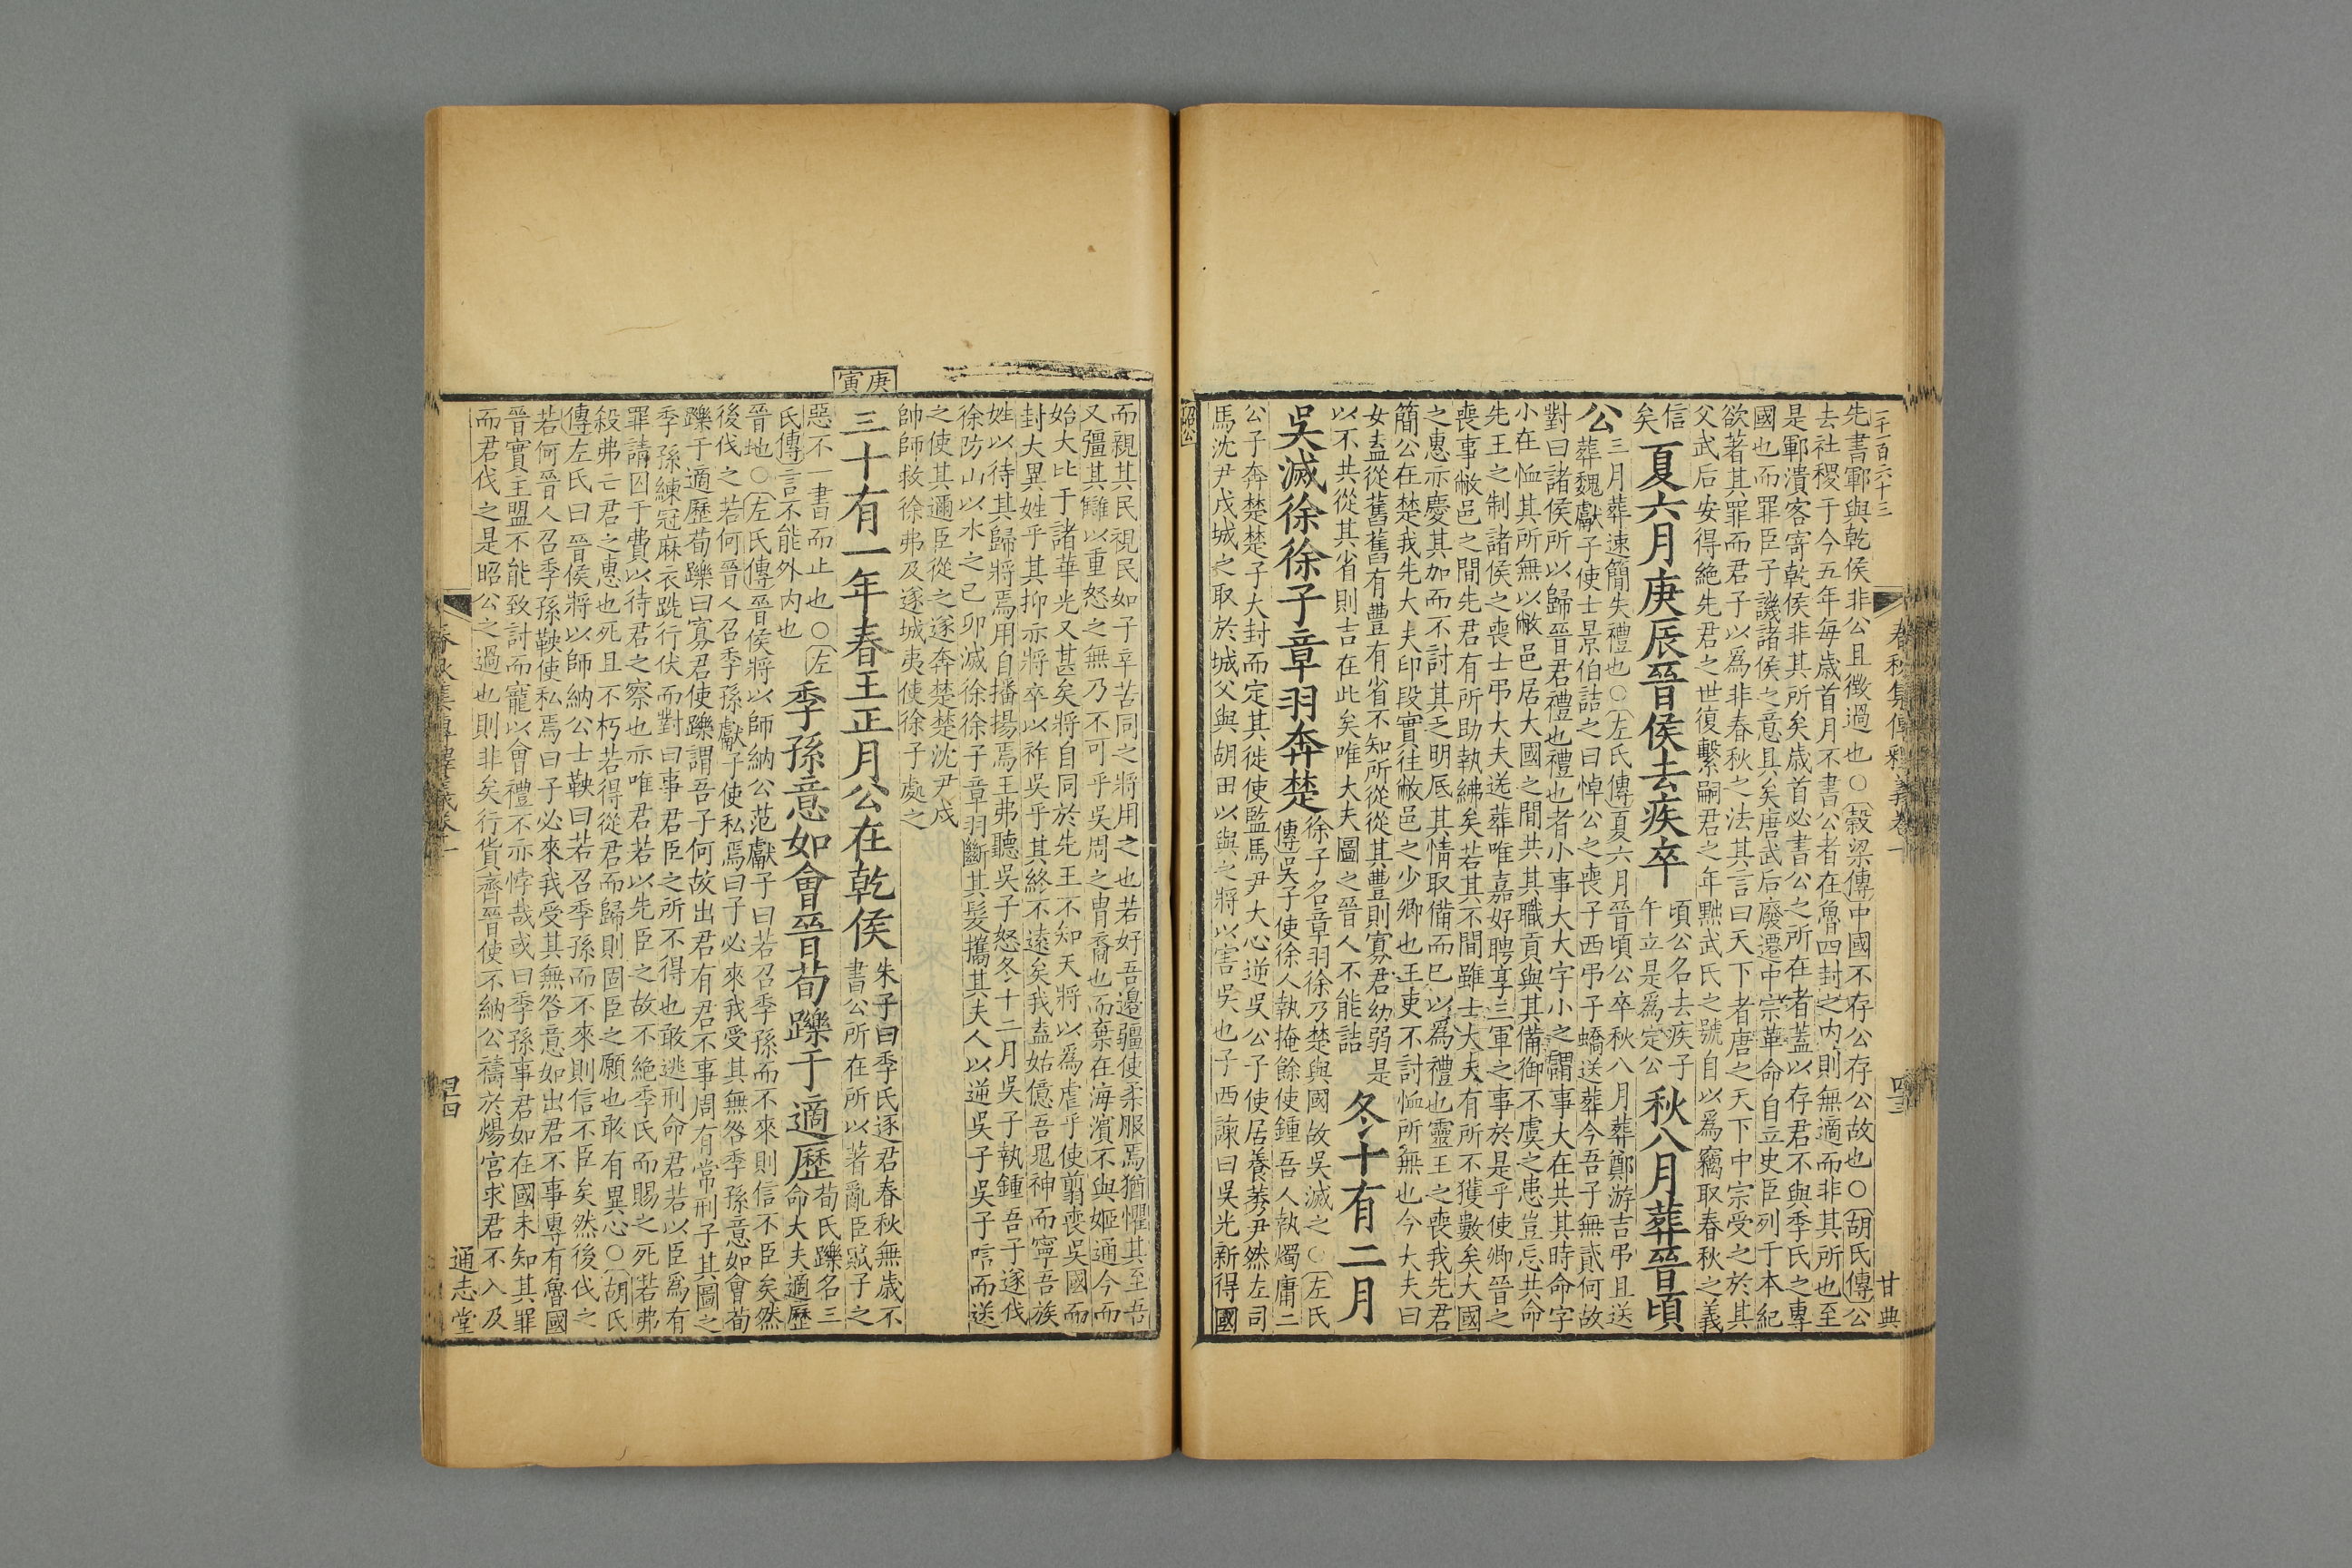 甘典
先書鄆與乾侯非公且徵過也○穀梁傳中國不存公存公故也○胡氏傳公
去社稷于今五年每歲首月不書公者在魯四封之内則無適而非其所也至
是鄆潰客寄乾侯非其所矣歲首必書公之所在者蓋以存君不與季氏之專
國也而罪臣子譏諸侯之意具矣唐武后廢遷中宗革命自立史臣列于本紀
欲著其罪而君子以爲非春秋之法其言曰天下者唐之天下中宗受之於其
父武后安得絶先君之世復繫嗣君之年黜武氏之號自以爲竊取春秋之義
信
矣
夏六月庚辰晉侯去疾卒
頃公名去疾子
午立是爲定公
秋八月葬晉頃
公
三月葬速簡失禮也○左氏傳夏六月晉頃公卒秋八月葬鄭游吉弔且送
葬魏獻子使士景伯詰之曰悼公之喪子西弔子蟜送葬今吾子無貳何故
對曰諸侯所以歸晉君禮也禮也者小事大大字小之謂事大在共其時命字
小在恤其所無以敝邑居大國之間共其職貢與其備御不虞之患豈忘共命
先王之制諸侯之喪士弔大夫送葬唯嘉好聘享三軍之事於是乎使卿晉之
喪事敝邑之間先君有所助執紼矣若其不間雖士大夫有所不獲數矣大國
之惠亦慶其加而不討其乏明厎其情取備而已以爲禮也靈王之喪我先君
簡公在楚我先大夫印段實往敝邑之少卿也王吏不討恤所無也今大夫曰
女盍從舊舊有豐有省不知所從從其豐則寡君幼弱是
以不共從其省則吉在此矣唯大夫圖之晉人不能詰
冬十有二月
吳滅徐徐子章羽奔楚
徐子名章羽徐乃楚與國故吳滅之○左氏
傳吳子使徐人執掩餘使鍾吾人執燭庸二
公子奔楚楚子大封而定其徙使監馬尹大心逆吳公子使居養莠尹然左司
馬沈尹戌城之取於城父與胡田以與之將以害吳也子西諫曰吳光新得國
昭公
而親其民視民如子辛苦同之將用之也若好吾邊疆使柔服焉猶懼其至吾
又彊其讎以重怒之無乃不可乎吳周之胄裔也而棄在海濱不與姬通今而
始大比于諸華光又甚矣將自同於先王不知天將以爲虐乎使翦喪吳國而
封大異姓乎其抑亦將卒以祚吳乎其終不遠矣我盍姑億吾鬼神而寧吾族
姓以待其歸將焉用自播揚焉王弗聽吳子怒冬十二月吳子執鍾吾子遂伐
徐防山以水之己卯滅徐徐子章羽斷其髮攜其夫人以逆吳子吳子唁而送
之使其邇臣從之遂奔楚楚沈尹戌
帥師救徐弗及遂城夷使徐子處之
庚寅
三十有一年春王正月公在乾侯
朱子曰季氏逐君春秋無歲不
書公所在所以著亂臣賊子之
惡不一書而止也○左
氏傳言不能外内也
季孫意如會晉荀躒于適歷
荀氏躒名三
命大夫適歷
晉地○左氏傳晉侯將以師納公范獻子曰若召季孫而不來則信不臣矣然
後伐之若何晉人召季孫獻子使私焉曰子必來我受其無咎季孫意如會荀
躒于適歷荀躒曰寡君使躒謂吾子何故出君有君不事周有常刑子其圖之
季孫練冠麻衣跣行伏而對曰事君臣之所不得也敢逃刑命君若以臣爲有
罪請囚于費以待君之察也亦唯君若以先臣之故不絶季氏而賜之死若弗
殺弗亡君之惠也死且不朽若得從君而歸則固臣之願也敢有異心○胡氏
傳左氏曰晉侯將以師納公士鞅曰若召季孫而不來則信不臣矣然後伐之
若何晉人召季孫鞅使私焉曰子必來我受其無咎意如出君不事專有魯國
晉實主盟不能致討而寵以會禮不亦悖哉或曰季孫事君如在國未知其罪
而君伐之是昭公之過也則非矣行貨齊晉使不納公禱於煬宮求君不入及
通志堂